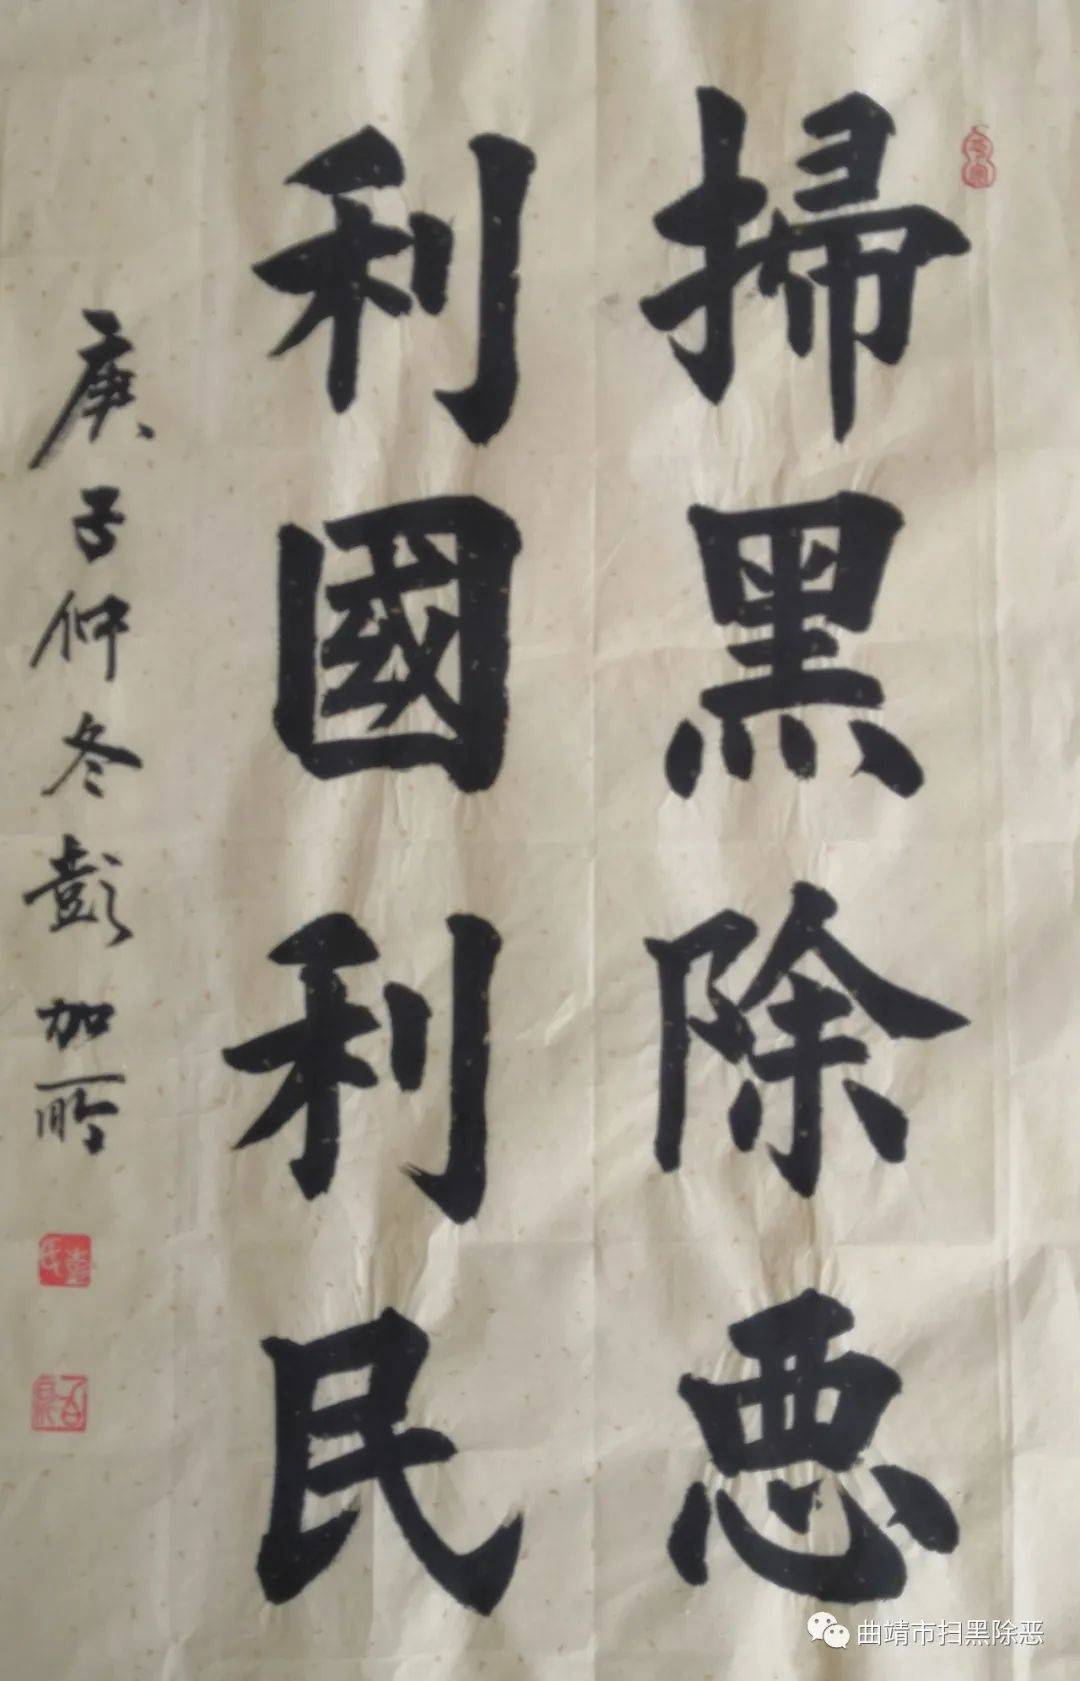 掃黑除悪
利國利民
庚子仲冬彭加
曲靖市扫黑除恶